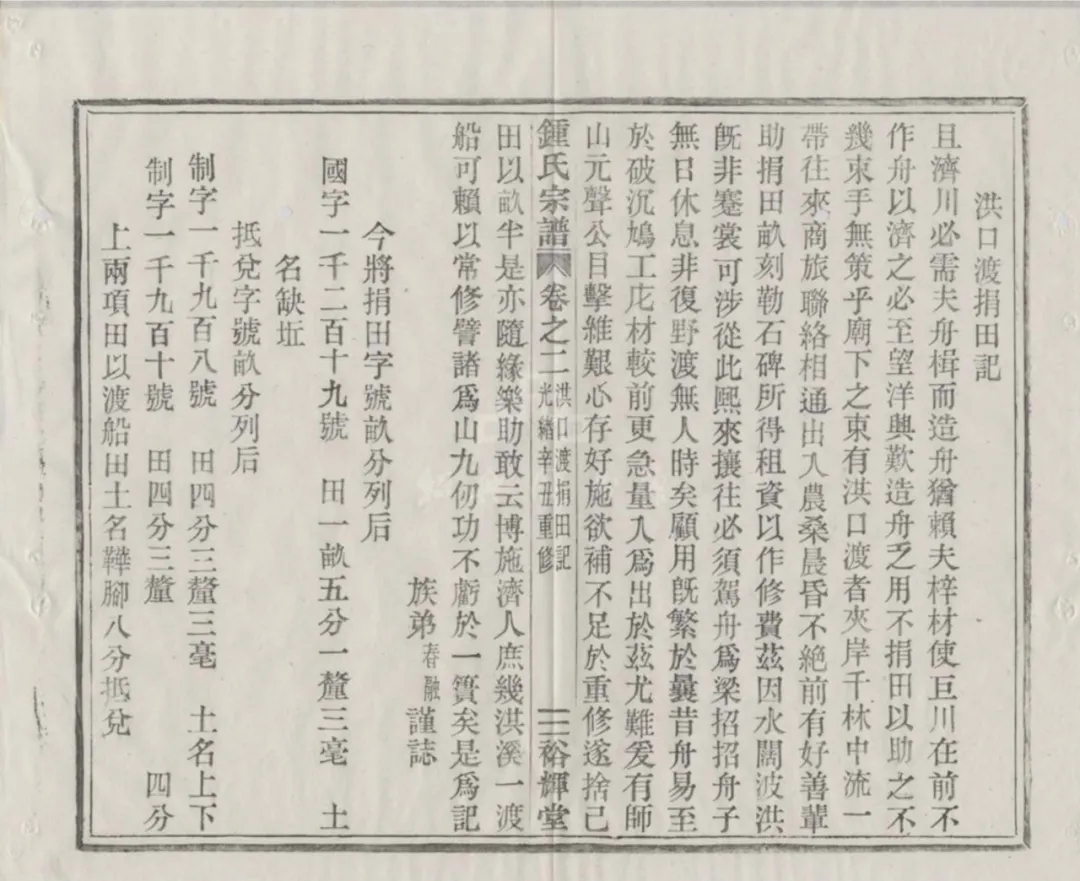 洪口渡捐田記
且濟川必需夫舟楫而造舟猶賴夫梓材使巨川在前不
作舟以濟之必至望洋興歎造舟乏用不捐田以助之不
幾束手無策乎廟下之東有洪口渡者夾岸千林中流一
帶往來商旅聯絡相通出入農桑晨昏不絶前有好善輩
助捐田畝刻勒石碑所得租資以作修費茲因水闊波洪
旣非蹇裳可涉從此熙來攘往必須駕舟爲梁招招舟子
無日休息非復野渡無人時矣顧用旣繁於曩昔舟易至
於破沉鳩工庀材較前更急量入爲出於茲尤難爰有師
山元聲公目擊維艱心存好施欲補不足於重修遂捨己
鍾氏宗譜 卷之二 洪口渡捐田記 光緒辛丑重修 三 裕輝堂
田以畝半是亦隨緣樂助敢云博施濟人庶幾洪溪一渡
船可賴以常修譬諸爲山九仞功不虧於一簣矣是爲記
族弟春融謹誌
今將捐田字號畝分列后
國字一千二百十九號 田一畝五分一釐三毫 土
名缺坵
抵兌字號畝分列后
制字一千九百八號 田四分三釐三毫 土名上下
制字一千九百十號 田四分三釐 四分
上兩項田以渡船田土名鞾腳八分抵兌